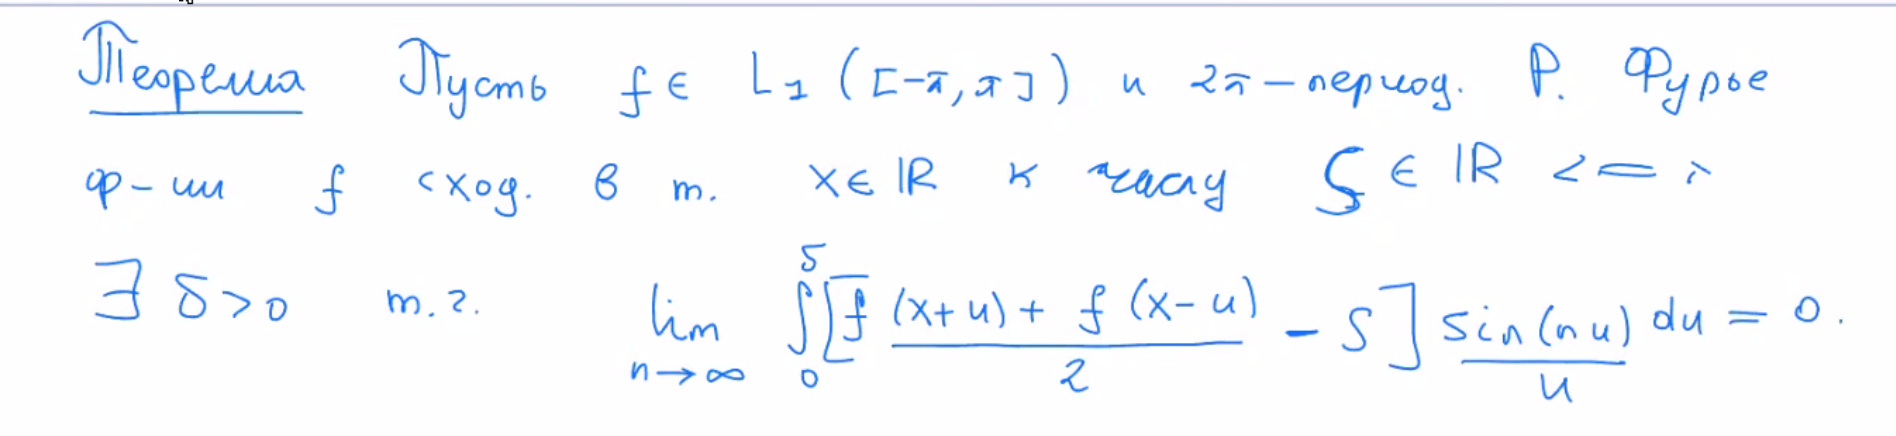 Теорема Пусть f ∈ L₁([-π, π]) и 2π-период. Р. Фурье
ф-ии f сход. в т. x ∈ ℝ к числу S ∈ ℝ <=>
∃ δ>0 т.г. lim_{n→∞} ∫_0^δ [ (f(x+u) + f(x-u))/2 - S ] sin(nu)/u du = 0.